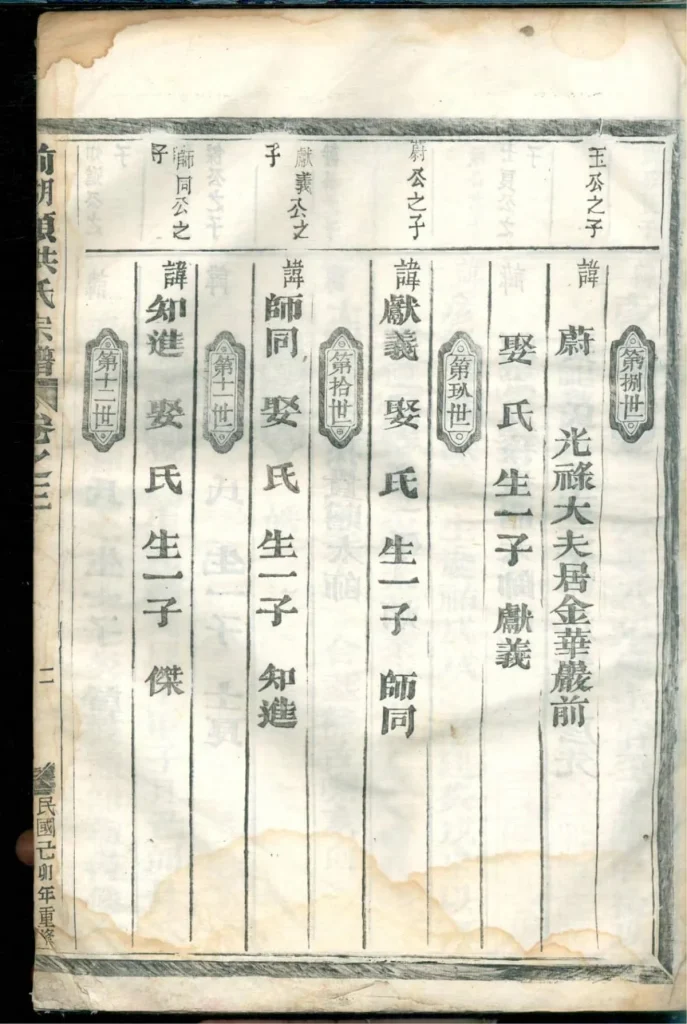 第捌世
玉公之子
諱 蔚 光祿大夫居金華嚴前
娶 氏 生一子 獻義
第玖世
蔚公之子
諱獻義 娶 氏 生一子 師同
第拾世
獻義公之
子
諱師同 娶 氏 生一子 知進
第十一世
師同公之
子
諱知進 娶 氏 生一子 傑
第十二世
前胡頭洪氏宗譜
卷之三
二
民國己卯年重修